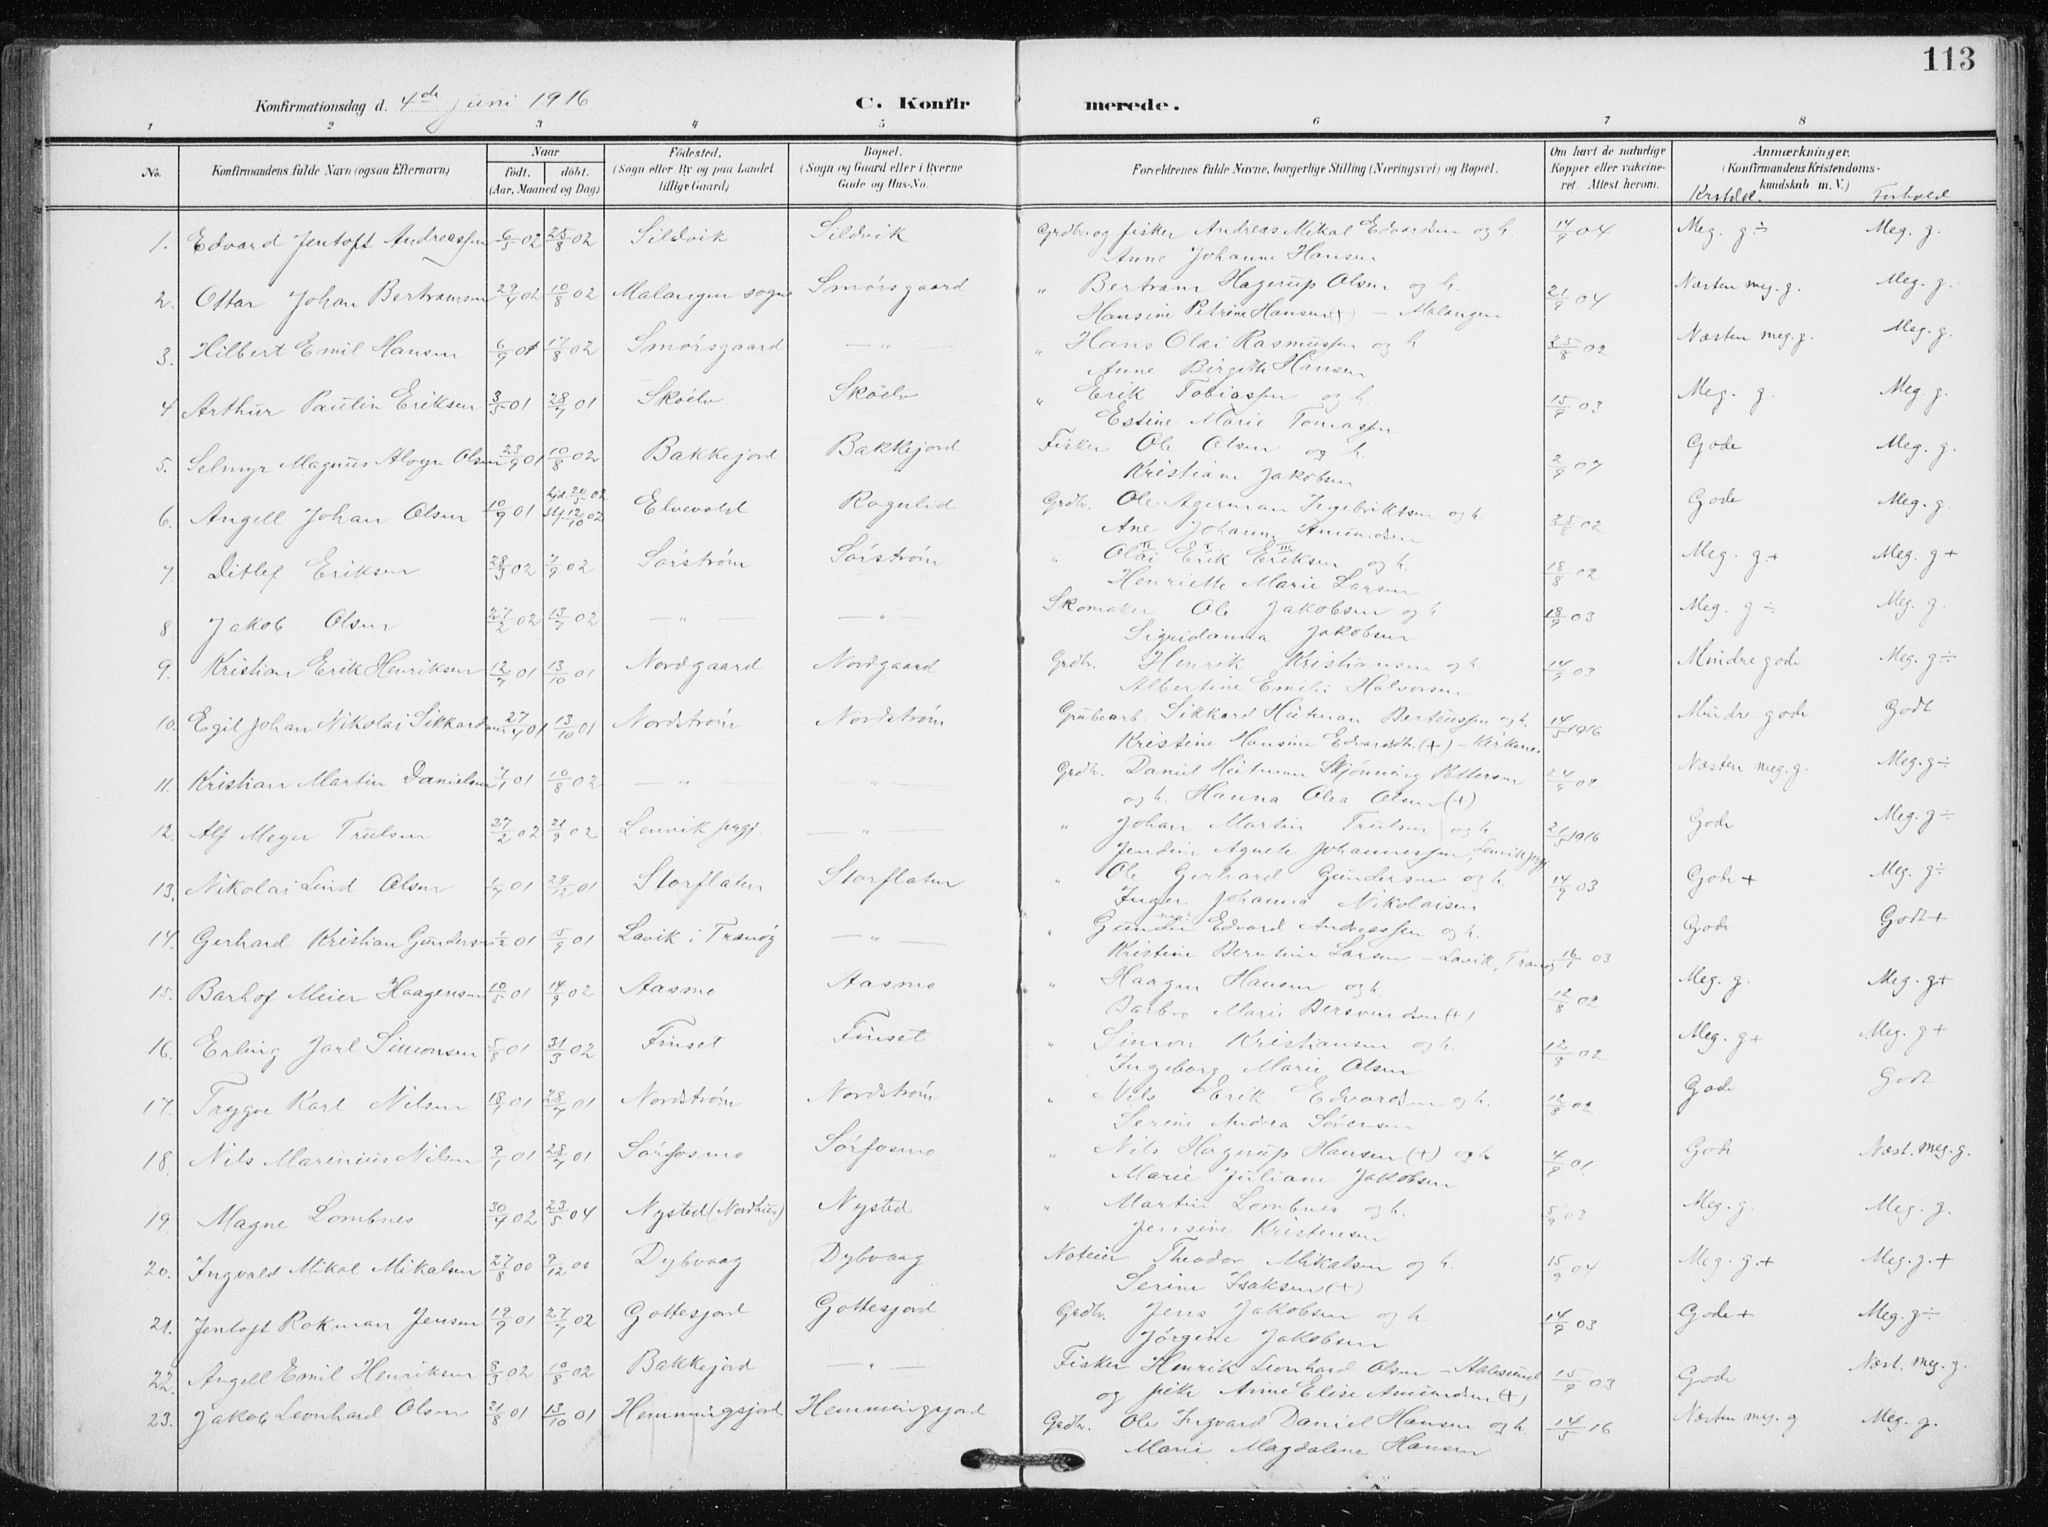 113
Konfirmationsdag d. 4de Juni 1916 C. Konfirmerede.
1 2 3 4 5 6 7 8
No. Konfirmandens fulde Navn (ogsaa Efternavn) Naar født. døbt. (Aar, Maaned og Dag) Fødested. (Sogn eller By og paa Landet tillige Gaard) Bopæl. (Sogn og Gaard eller i Byerne Gade og Hus-No. Forældrenes fulde Navne, borgerlige Stilling (Næringsvei) og Bopæl. Om havt de naturlige Kopper eller vakcineret. Attest herom. Anmærkninger. (Konfirmandens Kristendomskundskab m. V.) Forhold
1. Edvard Jentoft Andreassen 6/5 02 25/8 02 Sildvik Sildvik Grdbr. og fisker Andreas Mikal Edvardsen og h. 14/9 04 Meg. g ÷ Meg. g.
Anne Johanne Hansen
2. Ottar Johan Bertramsen 29/4 02 10/8 02 Malangen sogn Smørsgaard " Bertram Hagerup Olsen og h. 21/9 04 Næsten meg. g. Meg. g.
Hansine Petrine Hansen (+) – Malangen
3. Hilbert Emil Hansen 6/9 01 17/8 02 Smørsgaard – " – " Hans Olai Rasmussen og h. 25/8 02 Næsten meg. g. Meg. g.
Anne Birgitte Hansen
4 Arthur Paulin Eriksen 3/5 01 28/7 01 Skøelv Skøelv " Erik Tobiassen og h. 15/9 03 Meg. g. Meg. g.
Estine Marie Tomassen
5. Selmyr Magnus Alvyn Olsen 23/9 01 10/8 02 Bakkejord Bakkejord Fisker Ole Olsen og h. 2/9 07 Gode Meg. g.
Kristiane Jakobsen
6. Angell Johan Olsen 10/9 01 12/10 02 Elvevold Rognlid Grdbr. Ole Agerman Ingebriktsen og h. 25/8 02 Gode Meg. g.
Ane Johanne Amundsen
7. Ditlef Eriksen 28/3 02 7/9 02 Sørstrøm Sørstrøm " Olai Erik Eriksen og h. 18/8 02 Meg. g + Meg. g +
Henriette Marie Larsen
8 Jakob Olsen 27/2 02 13/7 02 – " – – " – Skomaker Ole Jakobsen og h. 18/9 03 Meg. g ÷ Meg. g.
Sigridanna Jakobsen
9. Kristian Erik Henriksen 12/7 01 13/10 01 Nordgaard Nordgaard Grdbr. Henrik Kristiansen og h. 14/9 03 Mindre gode Meg. g ÷
Albertine Emilie Halvorsen
10. Egil Johan Nikolai Sikkardsen 27/4 01 13/10 01 Nordstrøm Nordstrøm Grubearb. Sikkard Heitman Berteussen og h. 14/5 1916 Mindre gode Godt
Kristine Hansine Edvardsdtr. (+) – Kirkenes
11. Kristian Martin Danielsen 7/1 01 10/8 02 – " – – " – Grdbr. Daniel Heitman Skjønning Pettersen 24/9 02 Næsten meg. g. Meg. g ÷
og h. Hanna Olea Olsen (+)
12. Alf Meyer Trulsen 27/2 02 21/9 02 Lenvik prgj. – " – " Johan Martin Trulsen og h. 21/5 1916 Gode Meg. g ÷
Jendine Agnete Johannessen, Lenvik prgj
13. Nikolai Lind Olsen 1/7 01 29/12 01 Storflaten Storflaten " Ole Gerhard Gundersen og h. 14/9 03 Gode + Meg. g ÷
Inger Johanna Nikolaisen
14. Gerhard Kristian Gundersen 1/2 01 15/9 01 Lavik i Tranøy – " – " Gunder Edvard Andreassen og h. 16/1 03 Gode Godt +
Kristine Berntine Larsen – Lavik, Tranøy
15. Barhof Meier Haagensen 10/5 01 14/9 02 Aasmo Aasmo " Haagen Hansen og h. 12/8 02 Meg. g. Meg. g +
Barbro Marie Bersvendsen (+)
16. Erling Jarl Simonsen 5/8 01 31/3 02 Finset Finset " Simon Kristiansen og h. 12/8 02 Meg. g + Meg. g +
Ingeborg Marie Olsen
17. Trygve Karl Nilsen 18/1 01 28/7 01 Nordstrøm Nordstrøm " Nils Erik Edvardsen og h. 12/8 02 Gode Godt
Serine Andrea Sørensen
18. Nils Marenius Nilsen 9/1 01 28/7 01 Sørfosmo Sørfosmo " Nils Hagerup Hansen (+) og h. 4/9 01. Gode Næst. meg. g.
Marie Juliane Jakobsen
19. Magne Lombnes 30/9 02 23/5 04 Nysted (Nordhus) Nysted " Martin Lombnes og h. 5/9 03 Meg. g. Meg. g.
Jensine Kristensen
20. Ingvald Mikal Mikalsen 27/8 00 9/12 00 Dybvaag Dybvaag Noteier Theodor Mikalsen og h. 15/9 04 Meg. g. + Meg. g. +
Serine Isaksen (+)
21. Jentoft Rokman Jensen 19/9 01 27/7 02 Gottesjord Gottesjord Grdbr. Jens Jakobsen og h. 14/9 03 Gode + Meg. g ÷
Jørgine Jakobsen
22. Angell Emil Henriksen 8/3 02 10/8 02 Bakkejord – " – Fisker Henrik Leonhard Olsen – Aalesund 15/9 03 Gode Næst. meg. g.
og pike Anne Elise Amundsen (+)
23. Jakob Leonhard Olsen 21/8 01 13/10 01 Hemmingsjord Hemmingsjord Grdbr. Ole Ingvard Daniel Hansen og h. 14/5 16 Næsten meg. g Meg. g.
Marie Magdalene Hansen